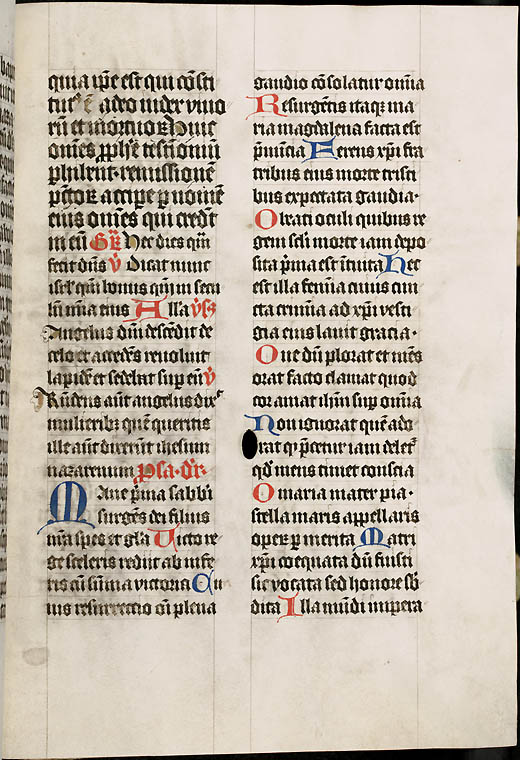 quia ip̄e est qui cōsti
tut᷒ ē a deo iudex viuo
rū et mortuoꝝ Huic
om̄es ꝓph̄e testimoniū
ꝑhibent remissionē
pctoꝝ accipe ꝑ nomen
eius om̄es qui credūt
in eū Gr̄ Hec dies quā
fecit dn̄s v̄ Dicat nunc
isrl̄ qm̄ bonus qm̄ in secu
lū mīa eius Alla v̄s
Angelus dn̄i descēdit de
celo et accedēs reuoluit
lapidē et sedebat sup eū v̄
Rn̄dens aūt angelus dix᷒
mulierib᷒ quē queritis
ille aūt dixerūt ihesum
nazarenum
Mane pͥma sabbi
surgens dei filius
nr̄a spes et gl̄a Uicto re
ge sceleris rediit ab infe
ris cū sūma victoria Cu
ius resurrectio oī plena
gaudio cōsolatur omīa
Resurgētis itaqꝫ ma
ria magdalena facta est
pͥnūcia Ferens xp̄i fra
tribus eius morte tristi
bus expectata gaudia·
O beati oculi quibus re
gem sclī morte iam depo
sita pͥma est ītuita Hec
est illa femīa cuius cun
cta crimīa ad xp̄i vesti
gia eius lauit gracia·
Que dū plorat et mēs
orat facto clamat quod
cor amat ih̄m sup omīa
Non ignorat quē ado
rat qͥ p̄cetur iam delet᷒
qd̄ mens timet conscia
O maria mater pia·
stella maris appellaris
operꝫ ꝑ merita Matri
xp̄i coequata dū fuisti
sic vocata sed honore sb̄
dita Illa mūdi impera